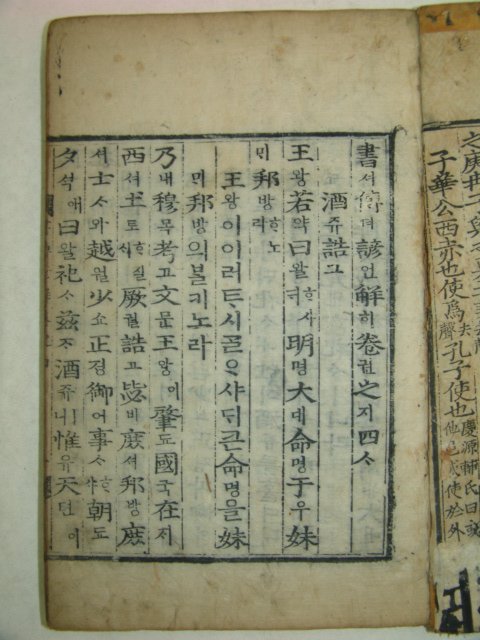 書셔傳뎐諺언解ᄒᆡ卷권之지四ᄉᆞ
酒쥬誥고
王왕若약曰왈ᄒᆞ샤明명大대命명于우妹
ᄆᆡ邦방ᄒᆞ노라
王왕이이러ᄐᆞ시ᄀᆞᆯᄋᆞ샤ᄃᆡ큰命명을妹
ᄆᆡ邦방의ᄇᆞᆯ기노라
乃내穆목考고文문王왕이肇됴國국在ᄌᆡ
西셔土토ᄒᆞ실ᄉᆡ厥궐誥고毖비庶셔邦방庶
셔士ᄉᆞ와越월少쇼正졍御어事ᄉᆞᄒᆞ샤朝됴
夕셕애曰왈祀ᄉᆞ玆ᄌᆞ酒쥬ㅣ니惟유天텬이
子華公西赤也使爲去聲孔子使也慶源輔氏曰
使於外